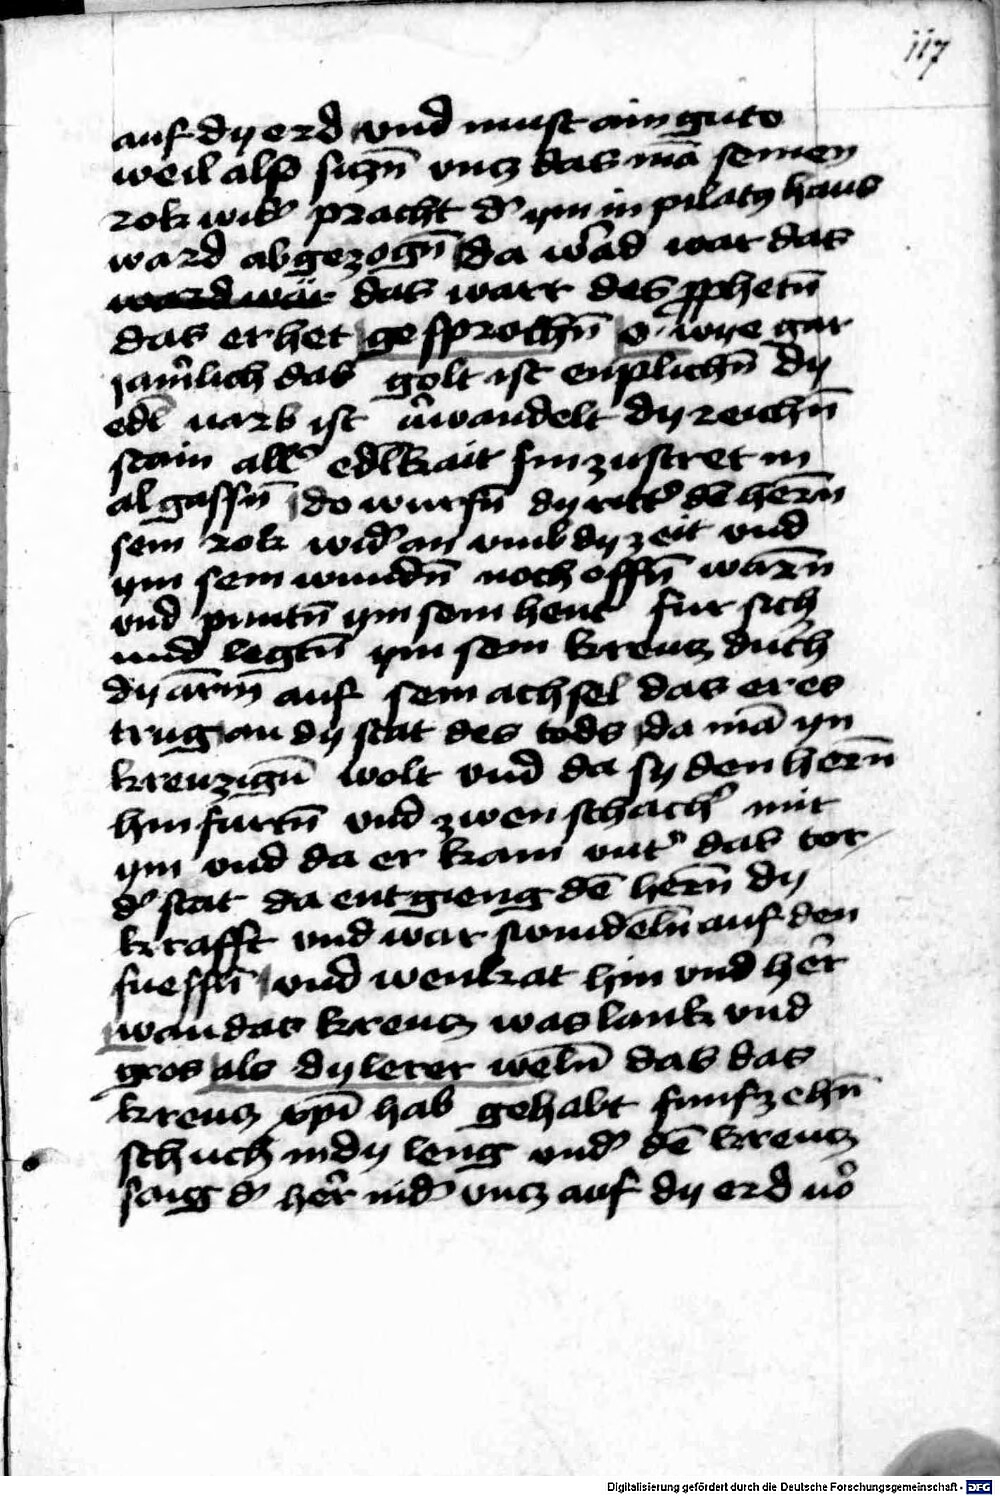 117
auf dy erd vnd must ain gute
weil also siczn̄ vncz das mā seinen
rok wid' pracht d' ym in pilatÿ haus
ward abgezogn̄ da wad war das
ward war das wart des pphetn̄
das er het gesprochn̄ o wye gar
jam̄lich das golt ist enplichn̄ dy
edl varb ist v'wandelt dy reichn̄
stain all' edlkait sin zustret in
al gassn̄ do wurfn̄ dy ritt' dē hern̄
sein rok wid' an vmb dy zeit vnd
ym sein wundn̄ noch offn̄ warn̄
vnd puntn̄ ym sein hent fur sich
vnd legtn̄ ym sein kreucz durch
dy arm̄ auf sein achsel das er es
trug an dy stat des tods da mā yn
kreuzign̄ wolt vnd da sy den hern̄
hin furtn̄ vnd zwen schach' mit
ym vnd da er kam vnt' das tor
d' stat da entgieng dē hern̄ dy
krafft vnd war swindeln̄ auf den
fuessn̄ vnd wenkat hin vnd her
wan das kreucz was lank vnd
gros als dy lerer weln̄ das das
kreucz xpī hab gehabt funfzehn̄
schuch in dy leng vnd' dē kreucz
saig d' her nid' vncz auf dy erd vō
Digitalisierung gefördert durch die Deutsche Forschungsgemeinschaft - DFG